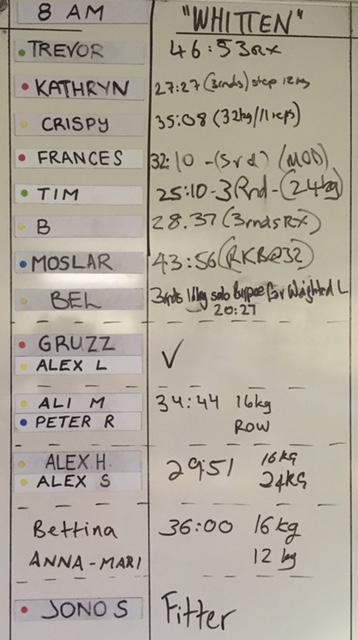 8 AM "WHITTEN"
TREVOR 46:53 RX
KATHRYN 27:27 (3rnds) step 12kg
CRISPY 35:08 (32kg/11reps)
FRANCES 32:10 - (MOD)
TIM 25:10 - 3Rnd - (24kg)
B 28.37 (3rndsRX)
MOSLAR 43:56 (RKB@32)
BEL 3rnds for Weighted L
20:27
GRUZZ
ALEX L
ALI M 34:44 16kg
PETER R ROW
ALEX H. 29:51 16kg
ALEX S 24KG
Bettina 36:00 16kg
ANNA-MARI 12 kg
JONO S Fitter